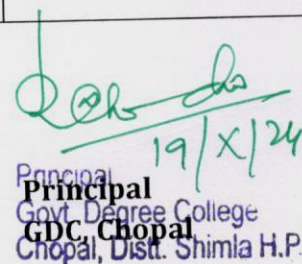 19/X/24
Principal
Principal
Govt. Degree College
GDC, Chopal
Chopal, Distt. Shimla H.P.